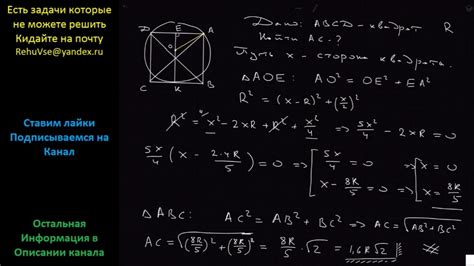 Есть задачи которые
не можете решить
Кидайте на почту
RehuVse@yandex.ru
Ставим лайки
Подписываемся на
Канал
Остальная
Информация в
Описании канала
D E A
O
C K B
Дано: ABCD - квадрат R
Найти AC - ?
Пусть x - сторона квадрата.
△AOE: AO² = OE² + EA²
R² = (x-R)² + (x/2)²
R² = x² - 2xR + R² + x²/4 ⇒ 5x²/4 - 2xR = 0
5x/4 (x - 2·4R/5) = 0 ⇒ [ 5x/4 = 0 ; x - 8R/5 = 0 ⇒ [ x = 0 ; x = 8R/5
△ABC: AC² = AB² + BC² ⇒ AC = √(AB² + BC²)
AC = √((8R/5)² + (8R/5)²) = 8R/5 · √2 = 1,6R√2